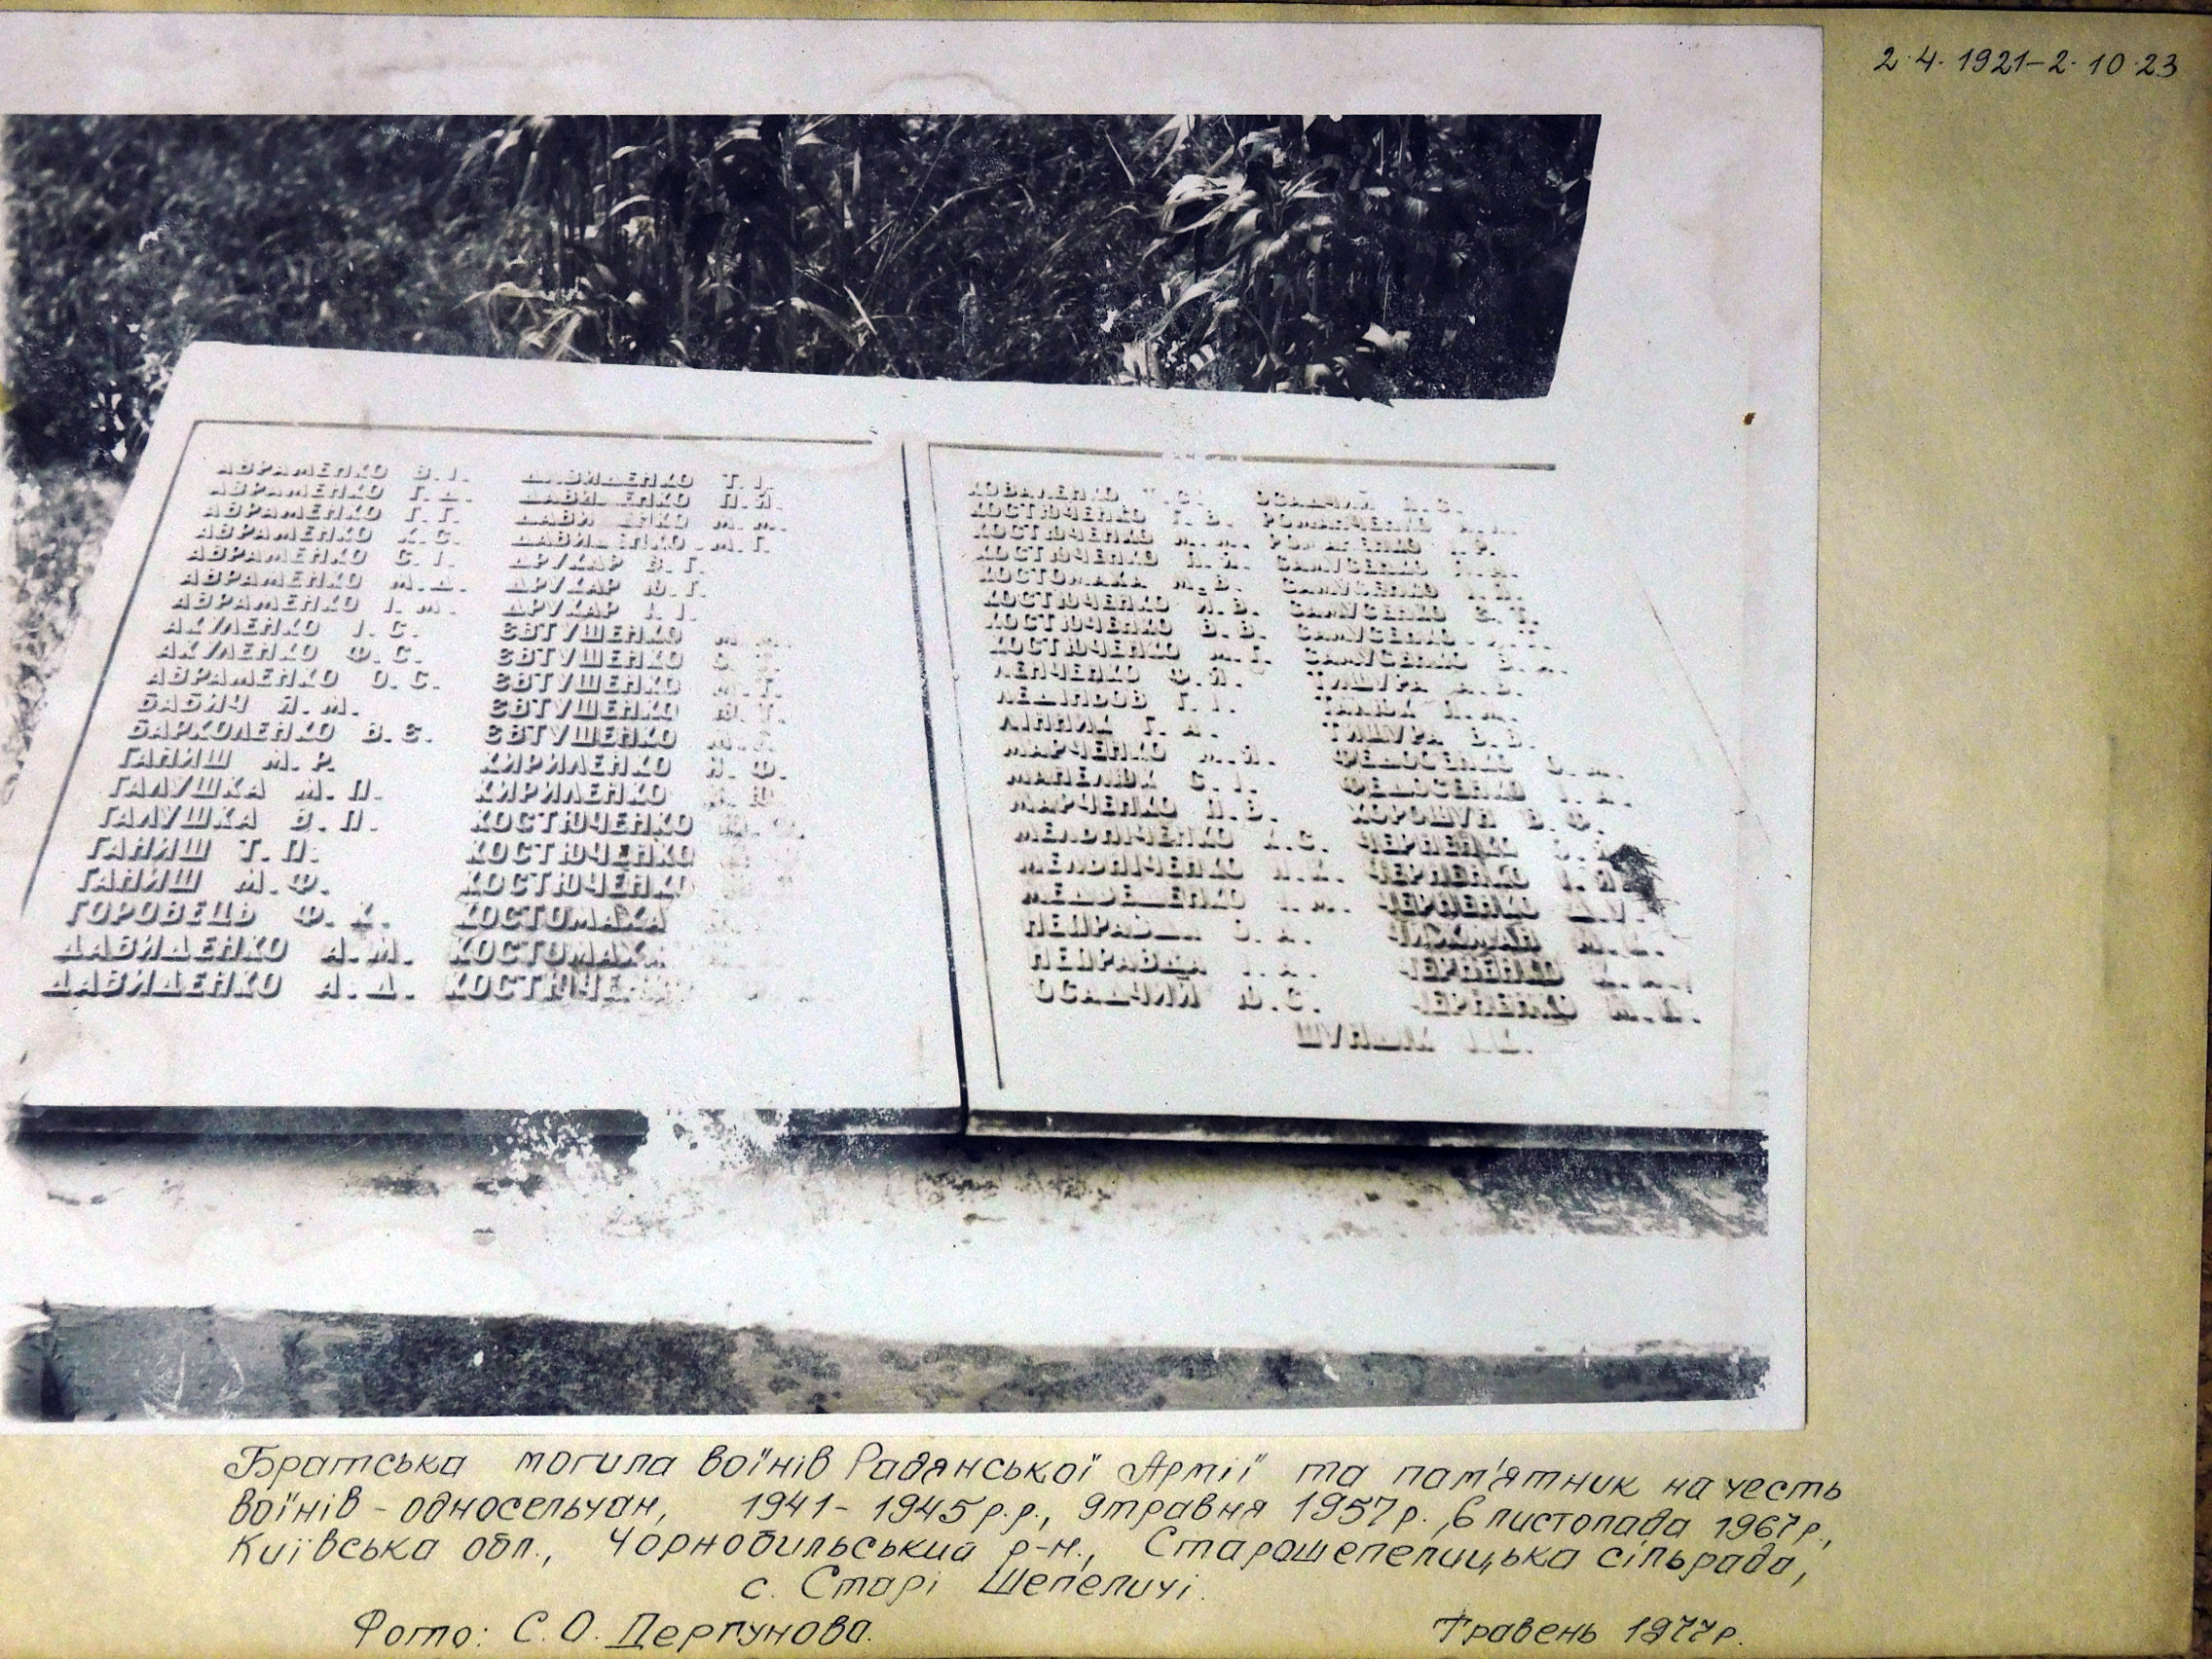 2.4.1921-2.10.23
АВРАМЕНКО В.І.
АВРАМЕНКО Г.Д.
АВРАМЕНКО Г.Г.
АВРАМЕНКО К.С.
АВРАМЕНКО С.І.
АВРАМЕНКО М.Д.
АВРАМЕНКО І.М.
АКУЛЕНКО І.С.
АКУЛЕНКО Ф.С.
АВРАМЕНКО О.С.
БАБИЧ Я.М.
БАРКОЛЕНКО В.Є.
ГАНИШ М.Р.
ГАЛУШКА М.П.
ГАЛУШКА В.П.
ГАНИШ Т.П.
ГАНИШ М.Ф.
ГОРОВЕЦЬ Ф.К.
ДАВИДЕНКО А.М.
ДАВИДЕНКО А.Д.
ДАВИДЕНКО Т.І.
ДАВИДЕНКО П.Я.
ДАВИДЕНКО М.М.
ДАВИДЕНКО М.Г.
ДРУКАР В.Г.
ДРУКАР Ю.Г.
ДРУКАР І.І.
ЄВТУШЕНКО
ЄВТУШЕНКО
ЄВТУШЕНКО М.Т.
ЄВТУШЕНКО Ю.Т.
ЄВТУШЕНКО
КИРИЛЕНКО Я.Ф.
КИРИЛЕНКО
КОСТЮЧЕНКО
КОСТЮЧЕНКО
КОСТЮЧЕНКО
КОСТОМАХА
КОСТОМАХА
КОСТЮЧЕНКО
КОВАЛЕНКО
КОСТЮЧЕНКО Г.В.
КОСТЮЧЕНКО М.М.
КОСТЮЧЕНКО П.Я.
КОСТОМАХА М.В.
КОСТЮЧЕНКО Й.В.
КОСТЮЧЕНКО В.В.
КОСТЮЧЕНКО М.Г.
ЛЕНЧЕНКО Ф.Я.
Г.І.
ЛІННИК Г.А.
МАРЧЕНКО М.Я.
МАНЕЛЮК С.І.
МАРЧЕНКО П.В.
МЕЛЬНІЧЕНКО К.С.
МЕЛЬНІЧЕНКО
НЕПРАВДА
НЕПРАВДА
ОСАДЧИЙ Ю.С.
ОСАДЧИЙ
РОМАНЧЕНКО
САМУСЕНКО
САМУСЕНКО
САМУСЕНКО Є.Т.
САМУСЕНКО
САМУСЕНКО
ТИШУРА А.В.
ТИШУРА В.В.
ФЕДОСЕНКО
ФЕДОСЕНКО
ХОРОШУН В.Ф.
ЧЕРНЕНКО
ЧЕРНЕНКО
ЧЕРНЕНКО
ЧИЖМАН
ЧЕРНЕНКО
ЧЕРНЕНКО
Братська могила воїнів Радянської Армії та пам'ятник на честь
воїнів - односельчан, 1941-1945 р.р., 9 травня 1957 р., 6 листопада 1967 р.,
Київська обл., Чорнобильський р-н., Старошепелицька сільрада,
с. Старі Шепеличі.
Фото: С.О. Дергунова. Травень 1977 р.